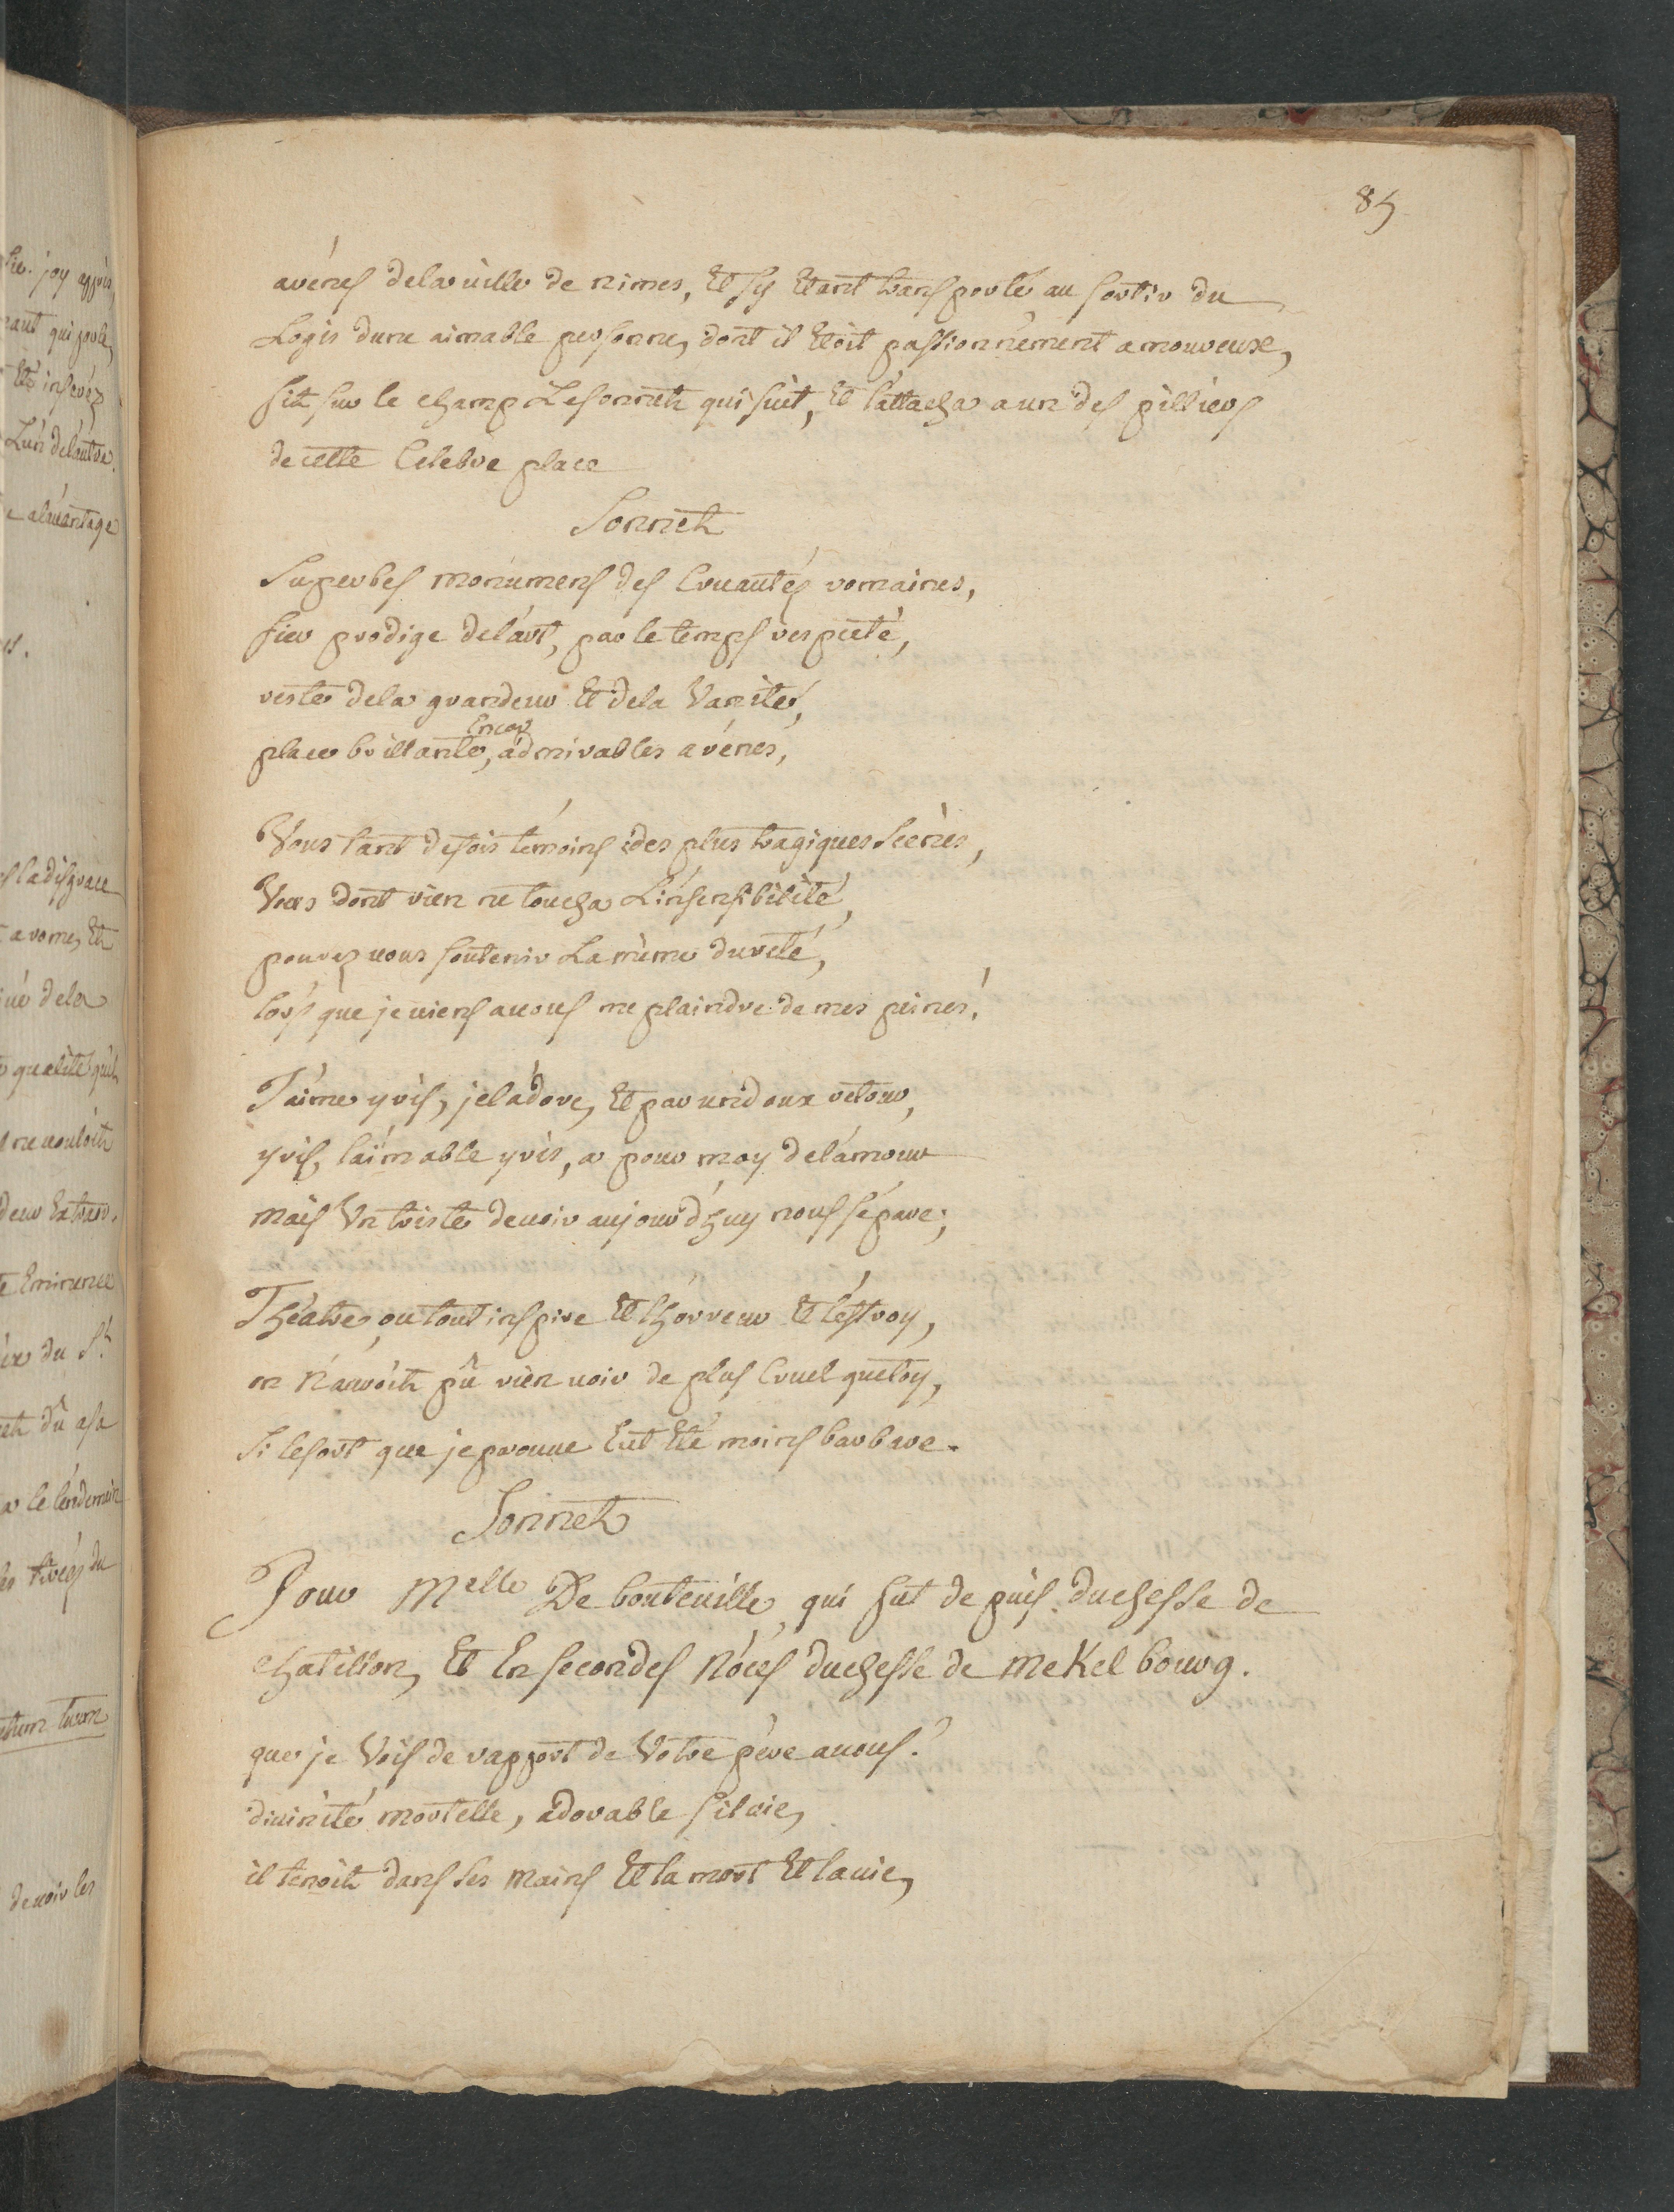 85
arénes dela ville de nimes, Et s'y Etant transporté au sortir du
Logis dune aimable personne, dont il Etoit passionnément amoureuse,
fit sur le champ Le sonnet qui suit, Et l'attacha a un des pilliers
de cette Celebre place
Sonnet
Superbes monumens des Cruautéz romaines,
fier prodige de l'art, par le temps respecté,
reste dela grandeur Et dela Vanité,
Encor
place brillante, admirables arénes,
Vous tant defois témoins des plus tragiques Scenes,
Vous dont rien ne toucha L'insensibilité,
pouvez vous soutenir La même dureté,
lors que je viens avous me plaindre de mes peines!
J'aime yris, je l'adore, Et par un doux retour,
yris, l'aimable yris, a pour moy de l'amour
mais Un triste devoir aujourd'huy nous sépare;
Théatre, ou tout inspire Et l'horreur Et l'effroy,
on N'auroit pû rien voir de plus Cruel que toy,
Si le sort que jeprouve Eut Eté moins barbare.
Sonnet
Pour Melle De bouteuille, qui fut de puis duchesse de
chatillon, Et En secondes Nóces duchesse de meKelbourg.
que je Vois de rapport de Votre pére avous!
divinité mortelle, adorable silvie,
il tenoit dans ses mains Et la mort Et la vie,